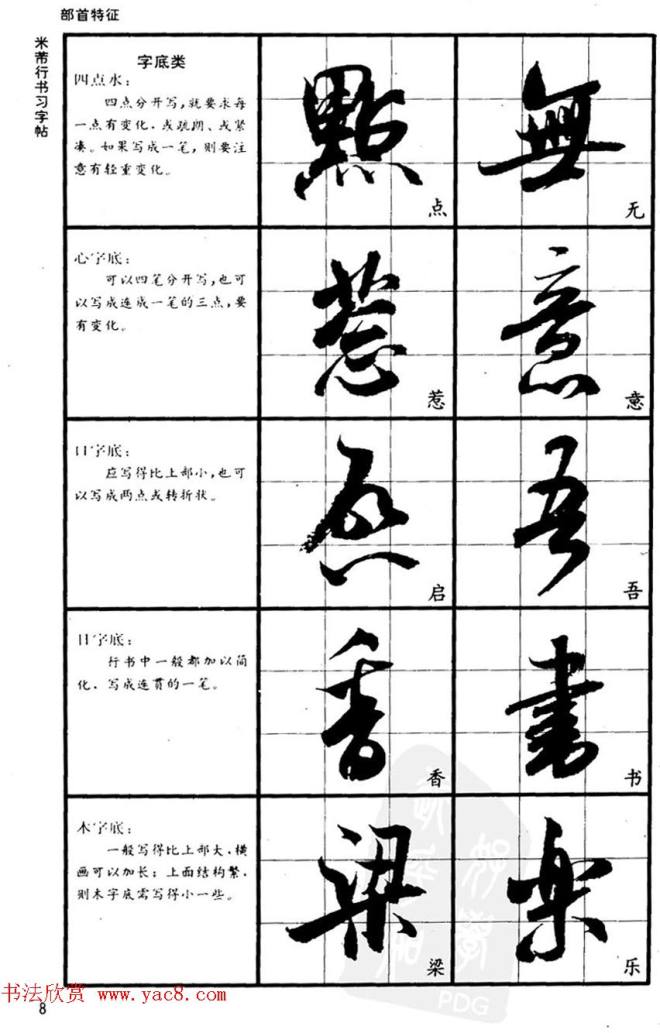 部首特征
米芾行书习字帖
字底类
四点水：
四点分开写，就要求每
一点有变化．或疏朗、或紧
凑。如果写成一笔，则要注
意有轻重变化。
點
点
無
无
心字底：
可以四笔分开写，也可
以写成连成一笔的三点，要
有变化。
惹
惹
意
意
口字底：
应写得比上部小，也可
以写成两点或转折状。
启
启
吾
吾
日字底：
行书中一般都加以简
化．写成连贯的一笔。
香
香
書
书
木字底：
一般写得比上部大．横
画可以加长；上面结构繁．
则木字底需写得小一些。
梁
梁
楽
乐
PDG
书法欣赏 www.yac8.com
8